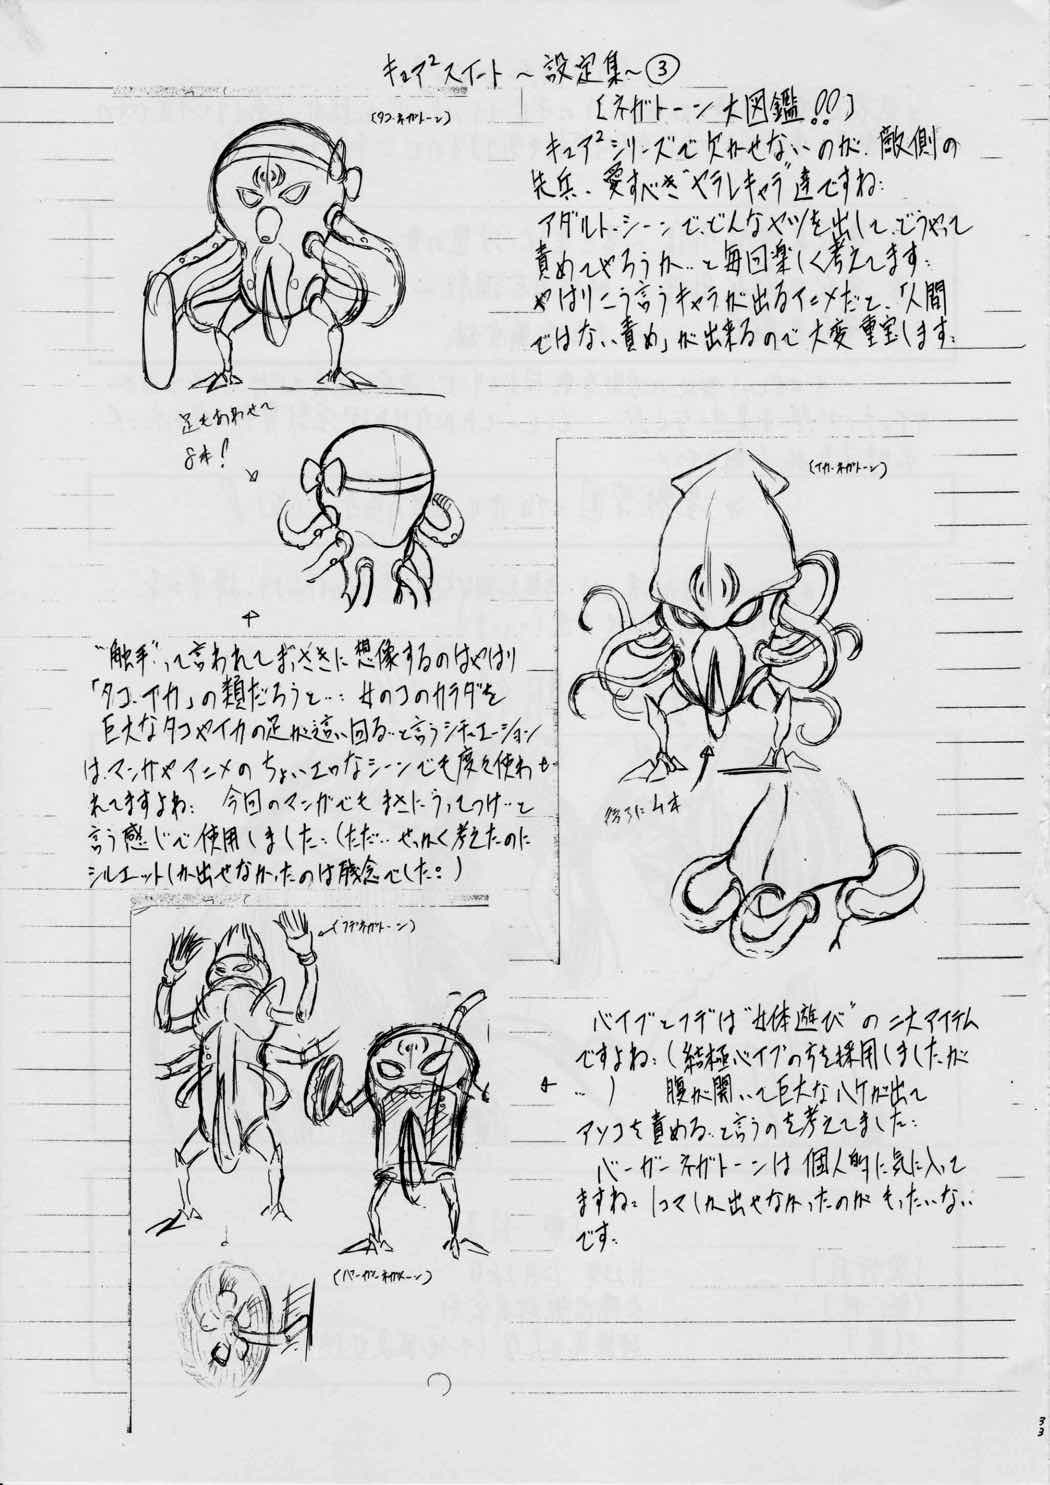 キュア²スイート～設定集～③
〔ネガトーン大図鑑!!〕
(タコ・ネガトーン)
キュア²シリーズで欠かせないのが、敵側の
先兵、愛すべき"ヤラレキャラ"達ですね。
アダルト・シーンで、どんなヤツを出して、どうやって
責めてやろうか…と毎回楽しく考えてます。
やはりこう言うキャラが出るアニメだと、「人間
ではない責め」が出来るので大変重宝します。
足もあわせて
8本!
(イカ・ネガトーン)
"触手"って言われてまっさきに想像するのはやはり
「タコ、イカ」の類だろうと…。女のコのカラダを
巨大なタコやイカの足が這い回る…と言うシチュエーション
は、マンガやアニメのちょいエロなシーンでも度々使わ
れてますよね。今回のマンガでもまさにうってつけ…と
言う感じで使用しました。(ただ…せっかく考えたのに
シルエットしか出せなかったのは残念でした。)
後ろに4本
(フデネガトーン)
バイブとフデは"女体遊び"の二大アイテム
ですよね。(結極バイブの方を採用しましたが
…) 腹が開いて巨大なハケが出て
アソコを責める…と言うのを考えてました。
バーガーネガトーンは個人的に気に入って
ますね。1コマしか出せなかったのがもったいない
です。
(バーガーネガトーン)
33